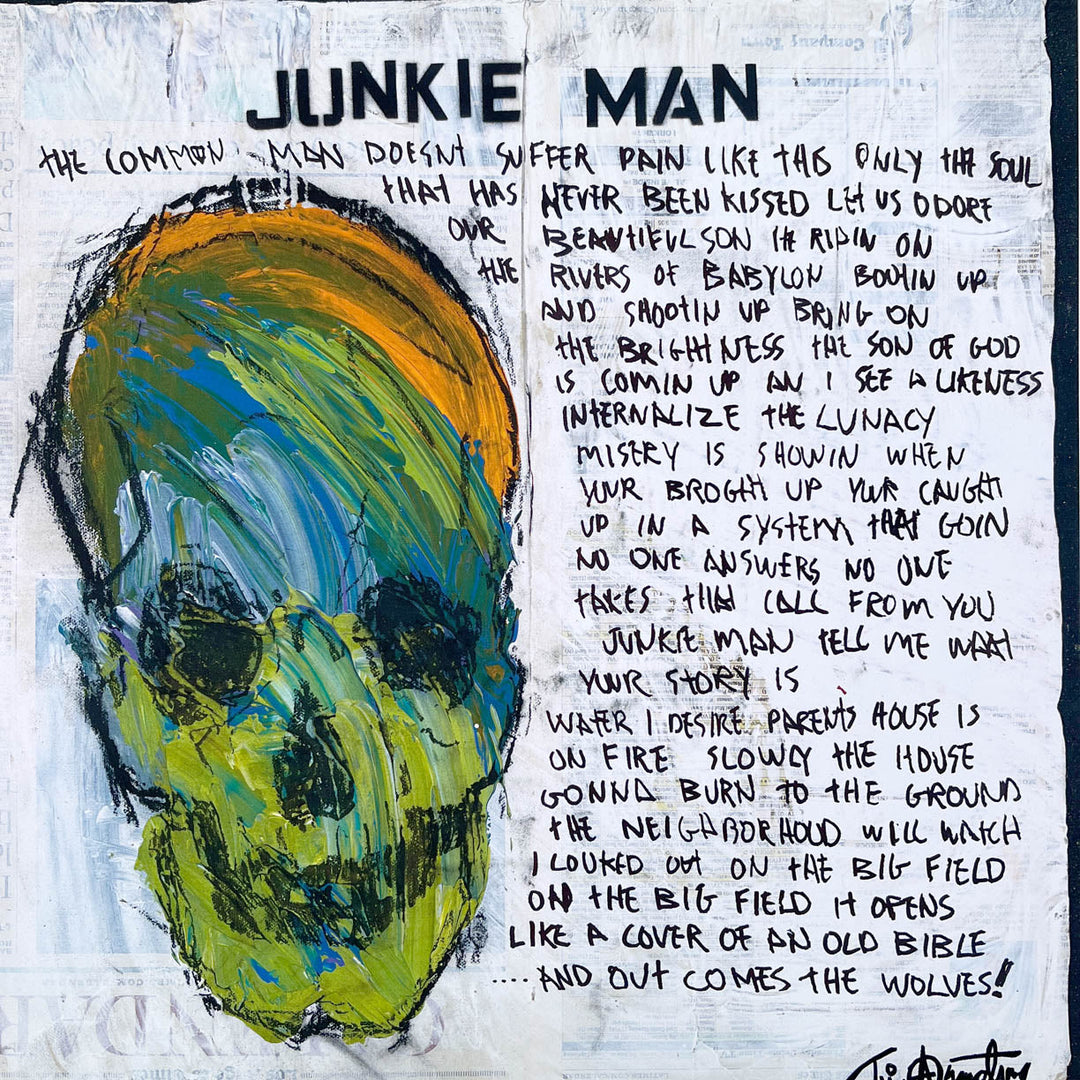 Company Town
JUNKIE MAN
THE COMMON MAN DOESNT SUFFER PAIN LIKE THIS ONLY THE SOUL
THAT HAS NEVER BEEN KISSED LET US ODORE
OUR BEAUTIFUL SON HE RIDIN ON
THE RIVERS OF BABYLON BOOTIN UP
AND SHOOTIN UP BRING ON
THE BRIGHTNESS THE SON OF GOD
IS COMIN UP AN I SEE A LIKENESS
INTERNALIZE THE LUNACY
MISERY IS SHOWIN WHEN
YOUR BROGHT UP YOUR CAUGHT
UP IN A SYSTEM THAT GOIN
NO ONE ANSWERS NO ONE
TAKES THAT CALL FROM YOU
JUNKIE MAN TELL ME WHAT
YOUR STORY IS
WATER I DESIRE PARENT'S HOUSE IS
ON FIRE SLOWLY THE HOUSE
GONNA BURN TO THE GROUND
THE NEIGHBORHOOD WILL WATCH
I LOOKED OUT ON THE BIG FIELD
ON THE BIG FIELD IT OPENS
LIKE A COVER OF AN OLD BIBLE
.... AND OUT COMES THE WOLVES!